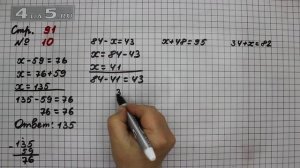 4А5.RU
Стр. 91
№ 10
x-59=76
x=76+59
x=135
135-59=76
76=76
Ответ: 135
-135
59
76
84-x=43
x=84-43
x=41
84-41=43
x+48=95
34+x=82